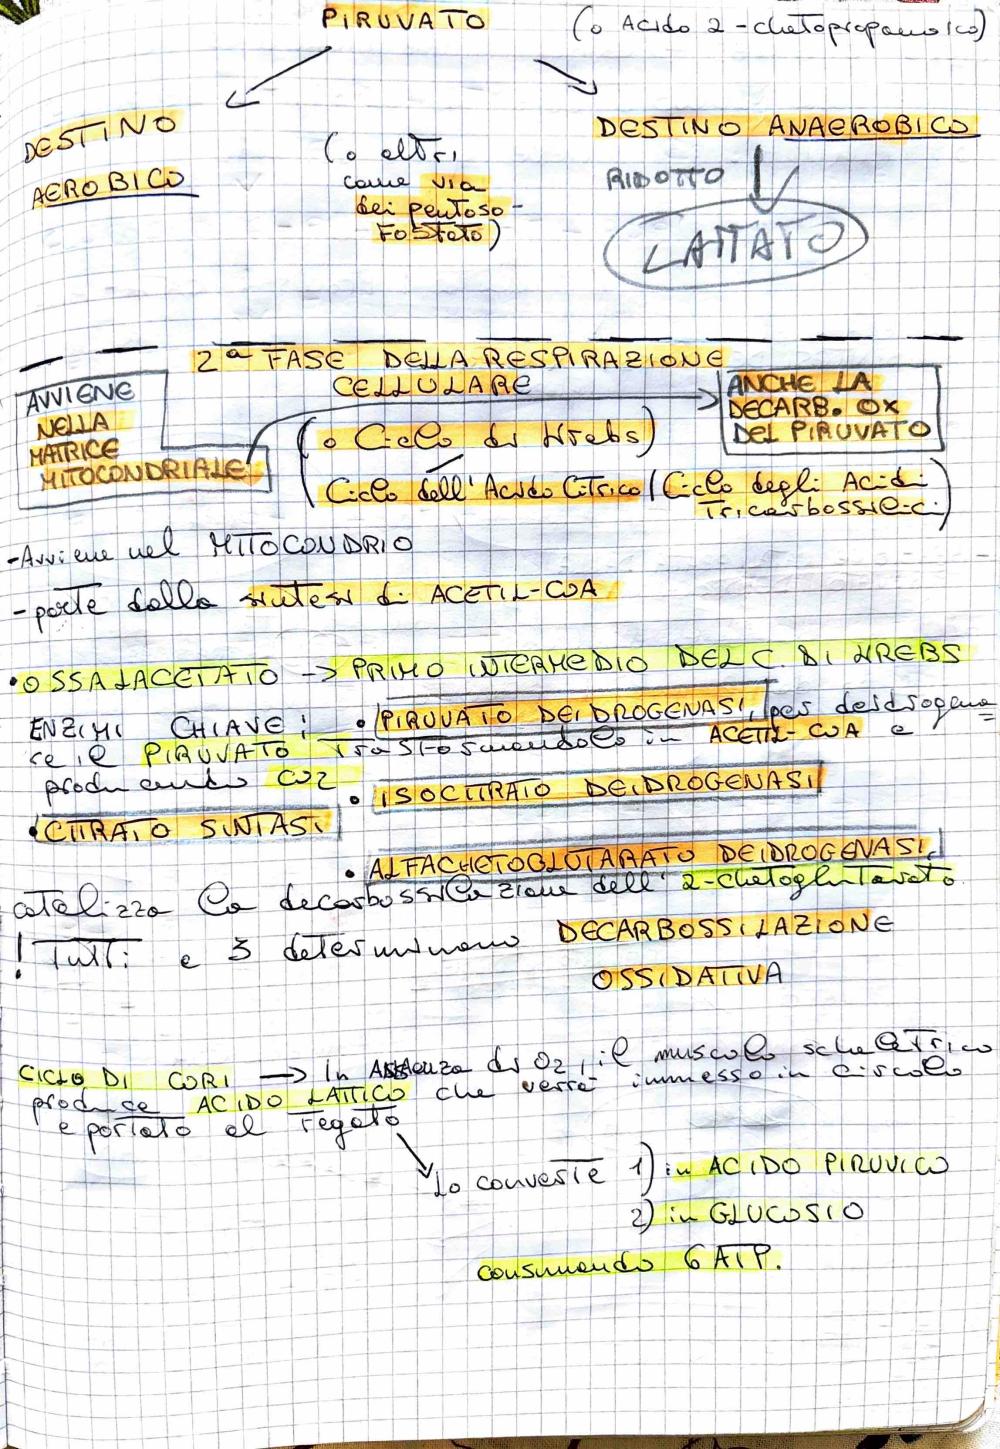 PIRUVATO (o Acido 2-chetopropanoico)
DESTINO
AEROBICO
(o altri
come via
dei pentoso-
Fosfato)
DESTINO ANAEROBICO
RIDOTTO
LATTATO
2ª FASE DELLA RESPIRAZIONE
CELLULARE
AVVIENE
NELLA
MATRICE
MITOCONDRIALE
ANCHE LA
DECARB. OX
DEL PIRUVATO
(o Ciclo di Krebs)
(Ciclo dell'Acido Citrico/Ciclo degli Acidi
Tricarbossilici)
-Avviene nel MITOCONDRIO
-parte dalla sintesi di ACETIL-COA
•OSSALACETATO -> PRIMO INTERMEDIO DEL C. DI KREBS
ENZIMI CHIAVE: • PIRUVATO DEIDROGENASI, per deidrogena=
re il PIRUVATO trasformandolo in ACETIL-COA e
producendo CO2
• ISOCITRATO DEIDROGENASI
•CITRATO SINTASI
• ALFACHETOGLUTARATO DEIDROGENASI,
catalizza la decarbossilazione dell' 2-chetoglutarato
! Tutti e 3 determinano DECARBOSSILAZIONE
OSSIDATIVA
CICLO DI CORI -> In Assenza di O2, il muscolo scheletrico
produce ACIDO LATTICO che verrà immesso in circolo
e portato al Fegato
Lo converte 1) in ACIDO PIRUVICO
2) in GLUCOSIO
consumando 6 ATP.